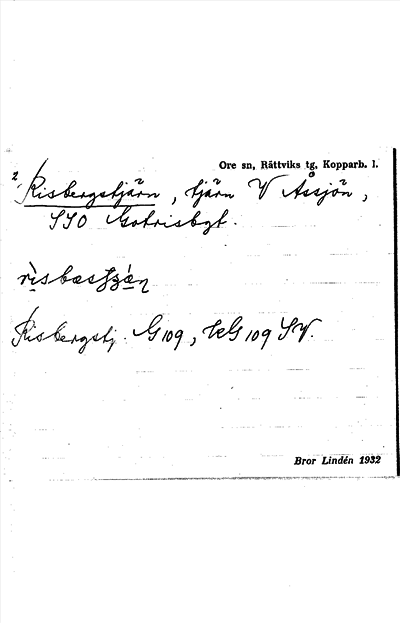 Ore sn, Rättviks tg, Kopparb. l.
2 Risbergstjärn, tjärn V Åssjön,
SSO Gotrisbgt.
Risbergstj. G109, kG 109 SV.
Bror Lindén 1932